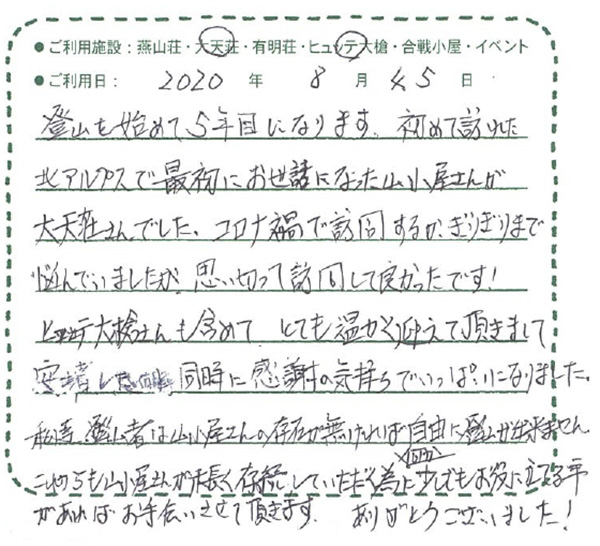 ●ご利用施設：燕山荘・大天荘・有明荘・ヒュッテ大槍・合戦小屋・イベント
●ご利用日： 2020 年 8 月 4.5 日
登山を始めて5年目になります。初めて訪れた
北アルプスで最初にお世話になった山小屋さんが
大天荘さんでした。コロナ禍で訪問するか、ぎりぎりまで
悩んでいましたが、思い切って訪問して良かったです!
ヒュッテ大槍さんも含めて、とても温かく迎えて頂きまして
安堵した 同時に感謝の気持ちでいっぱいになりました。
私達、登山者は山小屋さんの存在が無ければ自由に登山が出来ません
これからも山小屋さんが末長く存続していただく為に少しでもお役に立てる事
があればお手伝いさせて頂きます。 ありがとうございました!